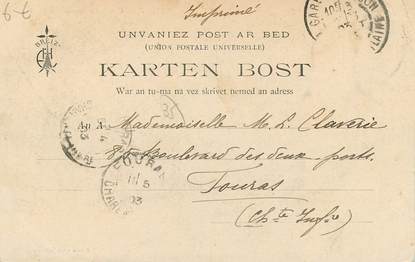 Imprimé
BREIZ
UNVANIEZ POST AR BED
(UNION POSTALE UNIVERSELLE)
KARTEN BOST
War an tu-ma na vez skrivet nemed an adress
Mademoiselle M. L. Claverie
Boulevard des deux ports
Fouras
(Ch.te Infre)
FOURAS
5
03